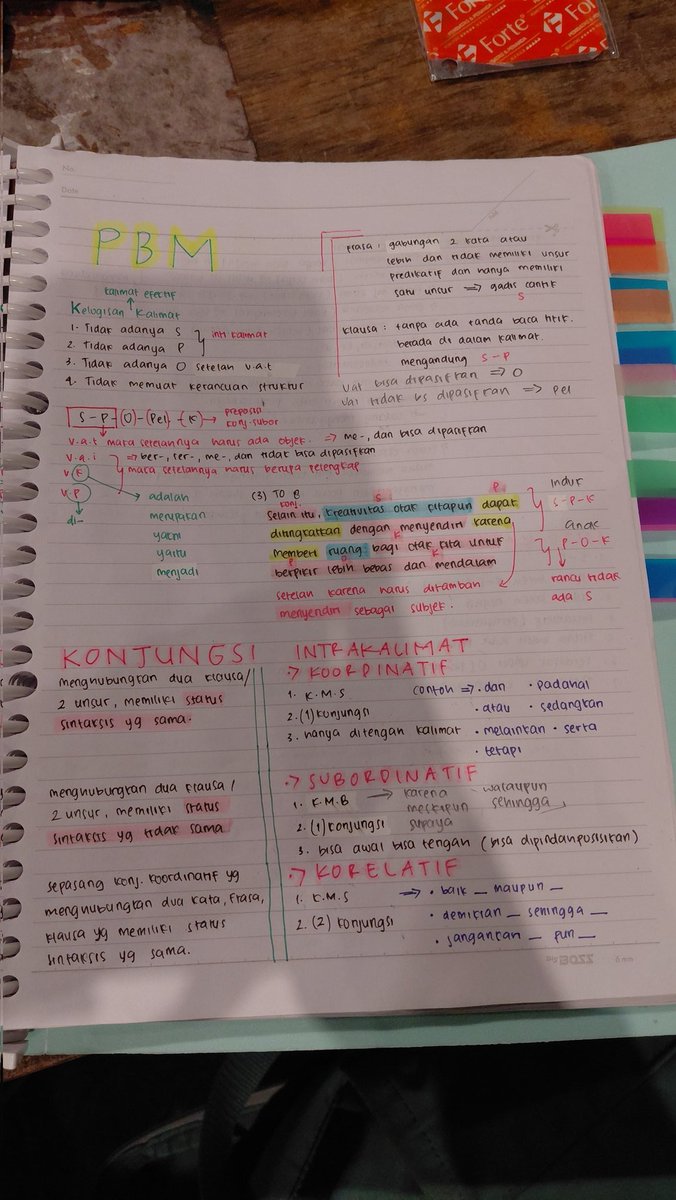 Forte
Forte
No.
Date
PBM
frasa : gabungan 2 kata atau
lebih dan tidak memiliki unsur
predikatif dan hanya memiliki
satu unsur => gadis cantik
S
klausa : tanpa ada tanda baca titik.
berada di dalam kalimat.
mengandung S-P
vat bisa dipasifkan => O
vai tidak bs dipasifkan => pel
kalimat efektif
Kelogisan Kalimat
1. Tidak adanya S
2. Tidak adanya P
inti kalimat
3. Tidak adanya O setelah v.a.t
4. Tidak memuat kerancuan struktur
S-P-(O)-(Pel)-(K) → preposisi
konj.subor
v.a.t maka setelahnya harus ada objek. => me-, dan bisa dipasifkan
v.a.i => ber-, ter-, me-, dan tidak bisa dipasifkan
maka setelahnya harus berupa pelengkap
v.K
v.P
di-
adalah
merupakan
yakni
yaitu
menjadi
(3) TO B
konj.
S
P
Selain itu, kreativitas otak kitapun dapat
ditingkatkan dengan menyendiri karena
K
memberi ruang bagi otak kita untuk
P
O
K
berpikir lebih bebas dan mendalam
setelah karena harus ditambah
menyendiri sebagai subjek.
induk
S-P-K
anak
P-O-K
rancu tidak
ada S
KONJUNGSI
menghubungkan dua klausa/
2 unsur, memiliki status
sintaksis yg sama.
menghubungkan dua klausa/
2 unsur, memiliki status
sintaksis yg tidak sama
sepasang konj. koordinatif yg
menghubungkan dua kata, frasa,
klausa yg memiliki status
sintaksis yg sama.
INTRAKALIMAT
KOORDINATIF
1. K.M.S contoh => • dan • padahal
2. (1) konjungsi • atau • sedangkan
3. hanya ditengah kalimat • melainkan • serta
• tetapi
SUBORDINATIF
1. K.M.B → karena walaupun
meskipun sehingga
2. (1) konjungsi supaya
3. bisa awal bisa tengah (bisa dipindahposisikan)
KORELATIF
1. K.M.S => • baik _ maupun _
2. (2) konjungsi • demikian _ sehingga _
• jangankan _ pun _
BOSS 6mm